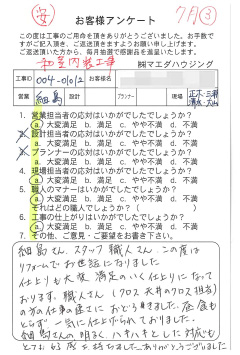 ㊛ お客様アンケート 7月③
この度は工事のご用命を頂きありがとうございました。お手数で
すがご記入頂き、ご返送頂きますようお願い申し上げます。
ご返送頂いた方から、毎月抽選で感謝品を進呈いたします。
和室内装工事 ㈱マエダハウジング
工事ID 004-0102 お客様名
営業 細島 設計 プランナー 現場
1. 営業担当者の応対はいかがでしたでしょうか?
a. 大変満足 b. 満足 c. やや不満 d. 不満
2. 設計担当者の応対はいかがでしたでしょうか?
a. 大変満足 b. 満足 c. やや不満 d. 不満
3. プランナーの応対はいかがでしたでしょうか?
a. 大変満足 b. 満足 c. やや不満 d. 不満
4. 現場担当者の応対はいかがでしたでしょうか?
a. 大変満足 b. 満足 c. やや不満 d. 不満
5. 職人のマナーはいかがでしたでしょうか?
a. 大変満足 b. 満足 c. やや不満 d. 不満
それはどの職人でしょうか?( )
6. 工事の仕上がりはいかがでしたでしょうか?
a. 大変満足 b. 満足 c. やや不満 d. 不満
7. その他、ご意見・ご要望をお書き下さい。
細島さん、スタッフ職人さん、この度は
リフォームでお世話になりました
仕上りも大変満足のいく仕上りになって
おります。職人さん(クロス天井のクロス担当)
の方の仕事の速さにおどろきました。昼食も
とらず、一気に仕上げられておりました。
細島さんの明るくハキハキとした対応も
とても好感を持ちました。ありがとうございました